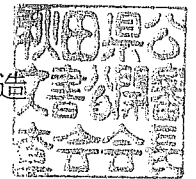 造
秋田県公
文書公開審
査会会長